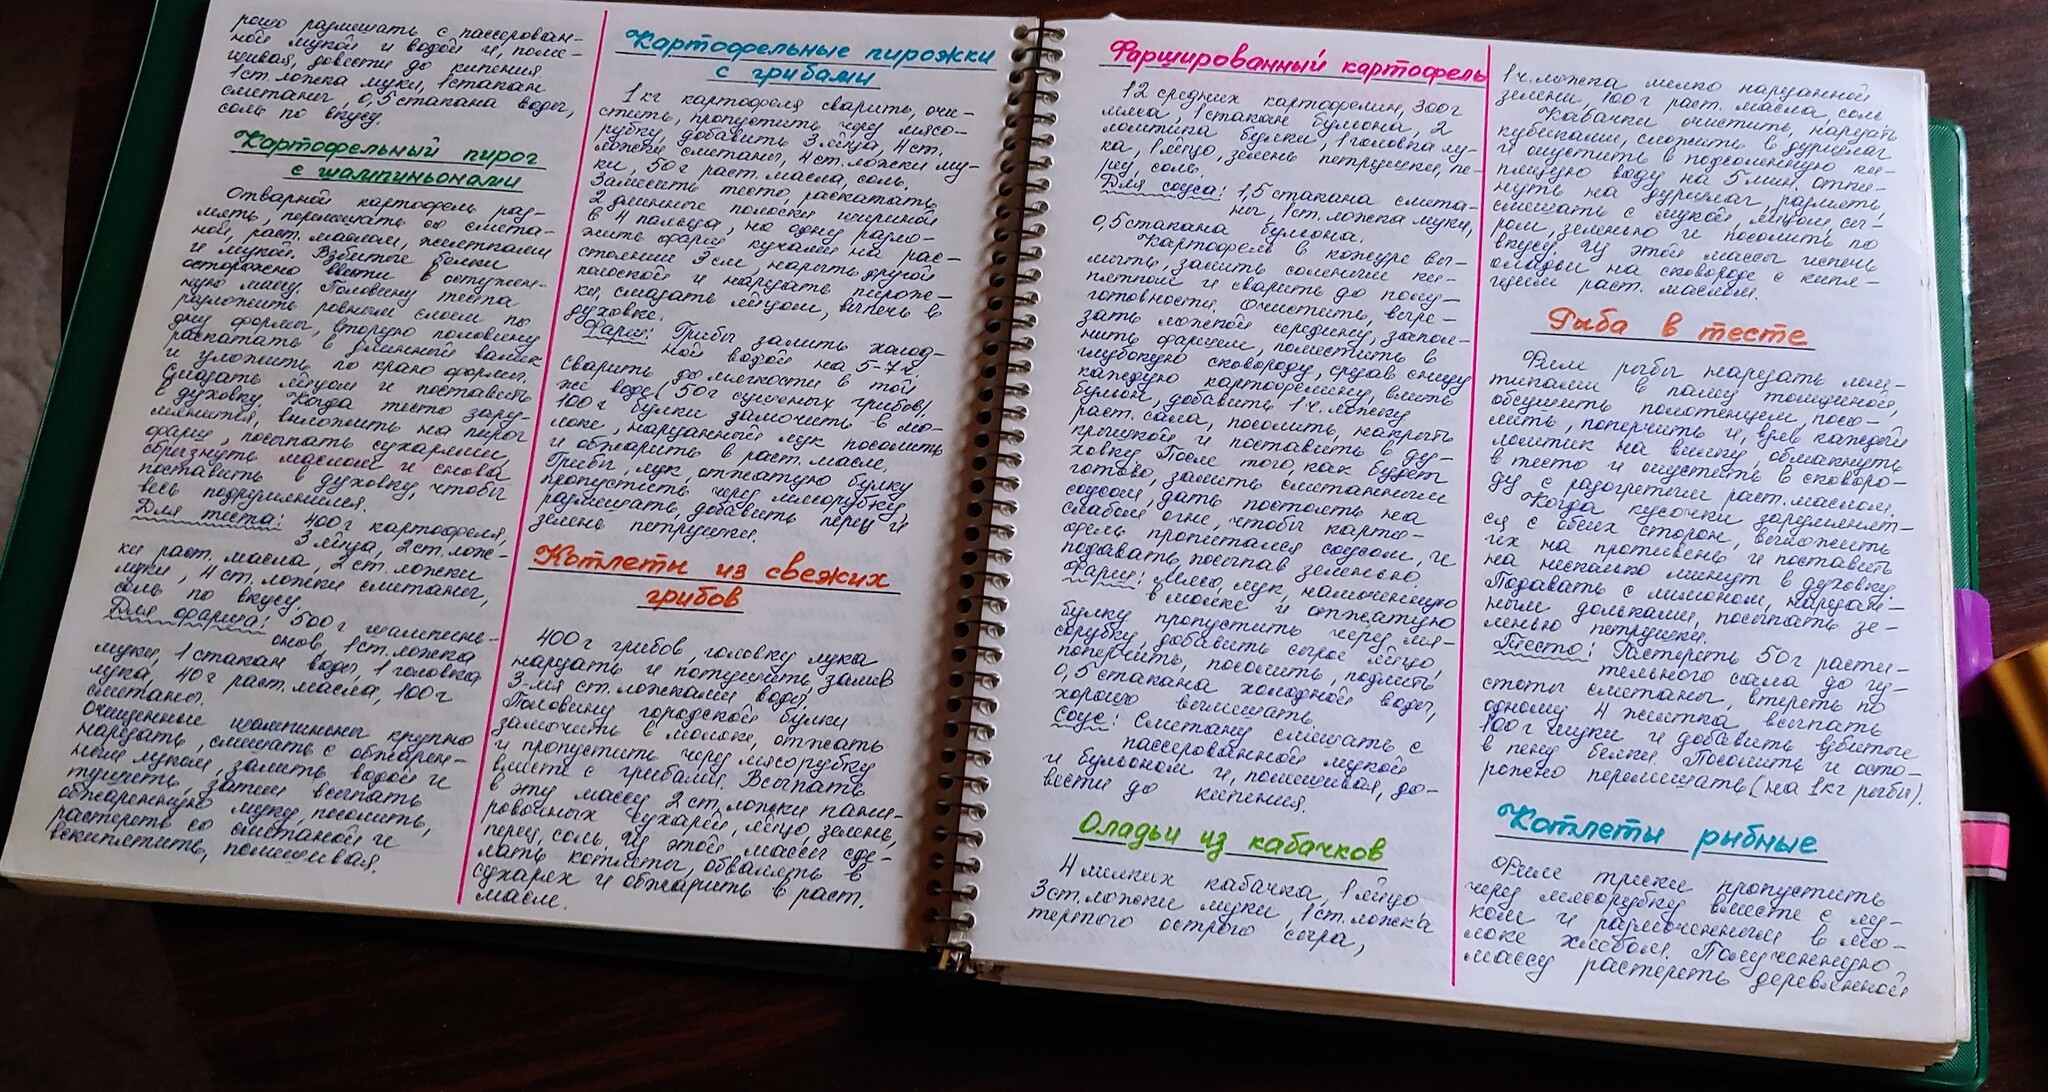 рошо размешать с пассерован-
ной мукой и водой и, поме-
шивая, довести до кипения.
1 ст. ложка муки, 1 стакан
сметаны, 0,5 стакана воды,
соль по вкусу.
Картофельный пирог
с шампиньонами
Отварной картофель раз-
мять, перемешать со смета-
ной, раст. маслом, желтками
и мукой. Взбитые белки
осторожно ввести в остужен-
ную массу. Половину теста
разложить ровным слоем по
дну формы, вторую половину
раскатать в длинный валик
и уложить по краю формы.
Смазать яйцом и поставить
в духовку. Когда тесто зару-
мянится, выложить на пирог
фарш, посыпать сухарями,
сбрызнуть маслом и снова
поставить в духовку, чтобы
весь подрумянился.
Для теста: 400 г картофеля,
3 яйца, 2 ст. лож-
ки раст. масла, 2 ст. ложки
муки, 4 ст. ложки сметаны,
соль по вкусу.
Для фарша: 500 г шампинь-
онов, 1 ст. ложка
муки, 1 стакан воды, 1 головка
лука, 40 г раст. масла, 100 г
сметаны.
Очищенные шампиньоны крупно
нарезать, смешать с обжарен-
ным луком, залить водой и
тушить, затем всыпать
обжаренную муку, посолить,
растереть со сметаной и
вскипятить, помешивая.
Картофельные пирожки
с грибами
1 кг картофеля сварить, очи-
стить, пропустить через мясо-
рубку, добавить 3 яйца, 4 ст.
ложки сметаны, 4 ст. ложки му-
ки, 50 г раст. масла, соль.
Замесить тесто, раскатать
2 длинные полоски шириной
в 4 пальца, на одну разло-
жить фарш кучками на рас-
стоянии 3 см, накрыть другой
полоской и нарезать пирож-
ки, смазать яйцом, испечь в
духовке.
Фарш: Грибы залить холод-
ной водой на 5-7 ч.
Сварить до мягкости в той
же воде (50 г сушеных грибов).
100 г булки замочить в мо-
локе, нарезанный лук посолить
и обжарить в раст. масле.
Грибы, лук, отжатую булку
пропустить через мясорубку,
размешать, добавить перец и
зелень петрушки.
Котлеты из свежих
грибов
400 г грибов, головку лука
нарезать и потушить, залив
3-мя ст. ложками воды.
Половину городской булки
замочить в молоке, отжать
и пропустить через мясорубку
вместе с грибами. Всыпать
в эту массу 2 ст. ложки пани-
ровочных сухарей, яйцо, зелень,
перец, соль. Из этой массы сде-
лать котлеты, обвалять в
сухарях и обжарить в раст.
масле.
Фаршированный картофель
12 средних картофелин, 300 г
мяса, 1 стакан бульона, 2
ломтика булки, 1 головка лу-
ка, 1 яйцо, зелень петрушки, пе-
рец, соль.
Для соуса: 1,5 стакана смета-
ны, 1 ст. ложка муки,
0,5 стакана бульона.
Картофель в кожуре вы-
мыть, залить соленым ки-
пятком и сварить до полу-
готовности. Очистить, выре-
зать ложкой середину, запол-
нить фаршем, поместить в
глубокую сковороду, срезав снизу
каждую картофелину, влить
бульон, добавить 1 ч. ложку
раст. сала, посолить, накрыть
крышкой и поставить в ду-
ховку. После того, как будет
готово, залить сметанным
соусом, дать постоять на
слабом огне, чтобы карто-
фель пропитался соусом, и
подавать, посыпав зеленью.
Фарш: Мясо, лук, намоченную
в молоке и отжатую
булку пропустить через мя-
сорубку, добавить сырое яйцо,
поперчить, посолить, подлить
0,5 стакана холодной воды,
хорошо вымешать.
Соус: Сметану смешать с
пассерованной мукой
и бульоном и, помешивая, до-
вести до кипения.
Оладьи из кабачков
4 мелких кабачка, 1 яйцо
3 ст. ложки муки, 1 ст. ложка
тертого острого сыра,
1 ч. ложка мелко нарезанной
зелени, 100 г раст. масла, соль
Кабачки очистить, нарезать
кубиками, сложить в дуршлаг
и опустить в подсоленную ки-
пящую воду на 5 мин. отки-
нуть на дуршлаг, размять,
смешать с мукой, яйцом, сы-
ром, зеленью и посолить по
вкусу. Из этой массы испечь
оладьи на сковороде с кипя-
щим раст. маслом.
Рыба в тесте
Филе рыбы нарезать лом-
тиками в палец толщиной,
обсушить полотенцем, посо-
лить, поперчить и, взяв каждый
ломтик на вилку, обмакнуть
в тесто и опустить в сковоро-
ду с разогретым раст. маслом.
Когда кусочки зарумянят-
ся с обеих сторон, выложить
их на противень и поставить
на несколько минут в духовку.
Подавать с лимоном, нарезан-
ным дольками, посыпать зе-
ленью петрушки.
Тесто: Растереть 50 г расти-
тельного сала до гу-
стоты сметаны, втереть по
одному 4 желтка, всыпать
100 г муки и добавить взбитые
в пену белки. Посолить и осто-
рожно перемешать (на 1 кг рыбы).
Котлеты рыбные
Филе трески пропустить
через мясорубку вместе с лу-
ком и размоченным в мо-
локе хлебом. Полученную
массу растереть деревянной